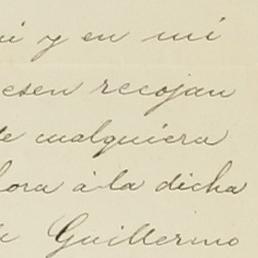 y en mi
esen recojan
de cualquiera
hora á la dicha
Guillermo